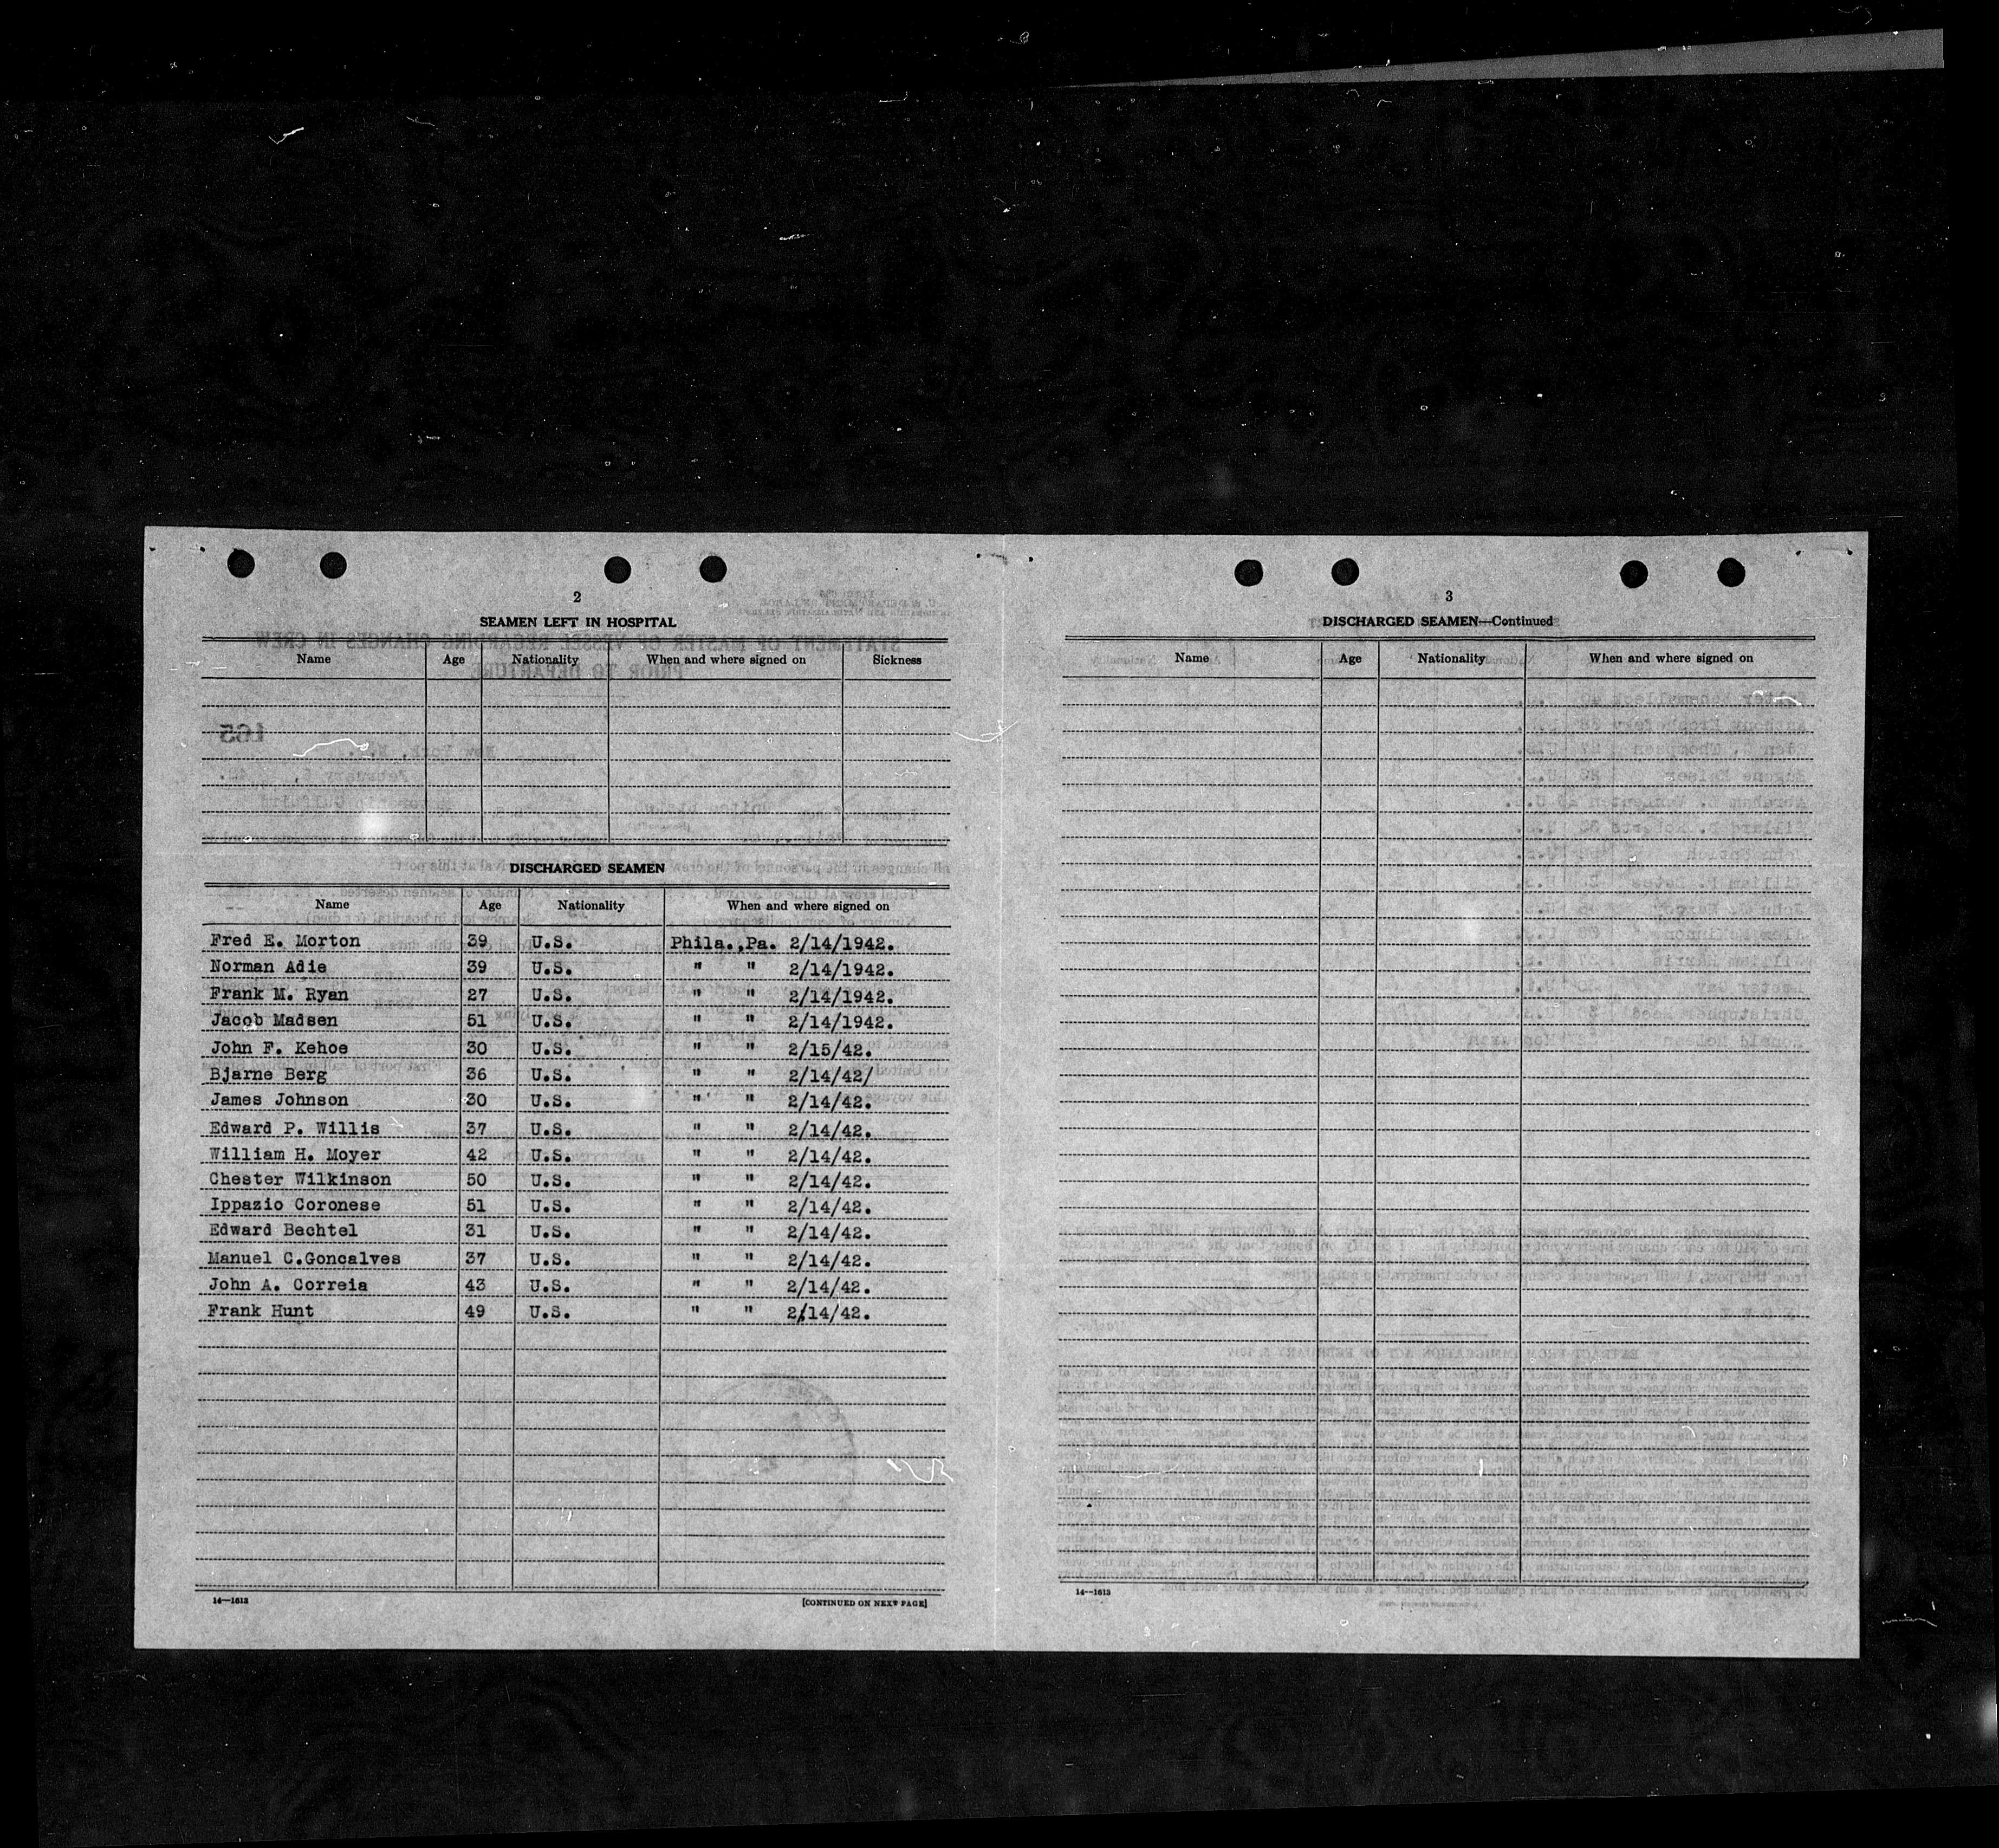 2
SEAMEN LEFT IN HOSPITAL
Name Age Nationality When and where signed on Sickness
DISCHARGED SEAMEN
Name Age Nationality When and where signed on
Fred E. Morton 39 U.S. Phila.,Pa. 2/14/1942.
Norman Adie 39 U.S. " " 2/14/1942.
Frank M. Ryan 27 U.S. " " 2/14/1942.
Jacob Madsen 51 U.S. " " 2/14/1942.
John F. Kehoe 30 U.S. " " 2/15/42.
Bjarne Berg 36 U.S. " " 2/14/42/
James Johnson 30 U.S. " " 2/14/42.
Edward P. Willis 37 U.S. " " 2/14/42.
William H. Moyer 42 U.S. " " 2/14/42.
Chester Wilkinson 50 U.S. " " 2/14/42.
Ippazio Coronese 51 U.S. " " 2/14/42.
Edward Bechtel 31 U.S. " " 2/14/42.
Manuel C.Goncalves 37 U.S. " " 2/14/42.
John A. Correia 43 U.S. " " 2/14/42.
Frank Hunt 49 U.S. " " 2/14/42.
14—1613
[CONTINUED ON NEXT PAGE]
3
DISCHARGED SEAMEN—Continued
Name Age Nationality When and where signed on
14—1613